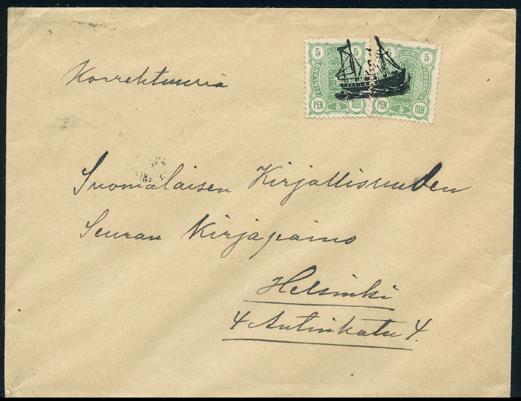 5 5 5 5
Korrehtuuria
PEN 5 PEN 5
Suomalaisen Kirjallisuuden
Seuran Kirjapaino
Helsinki
4 Antinkatu 4.